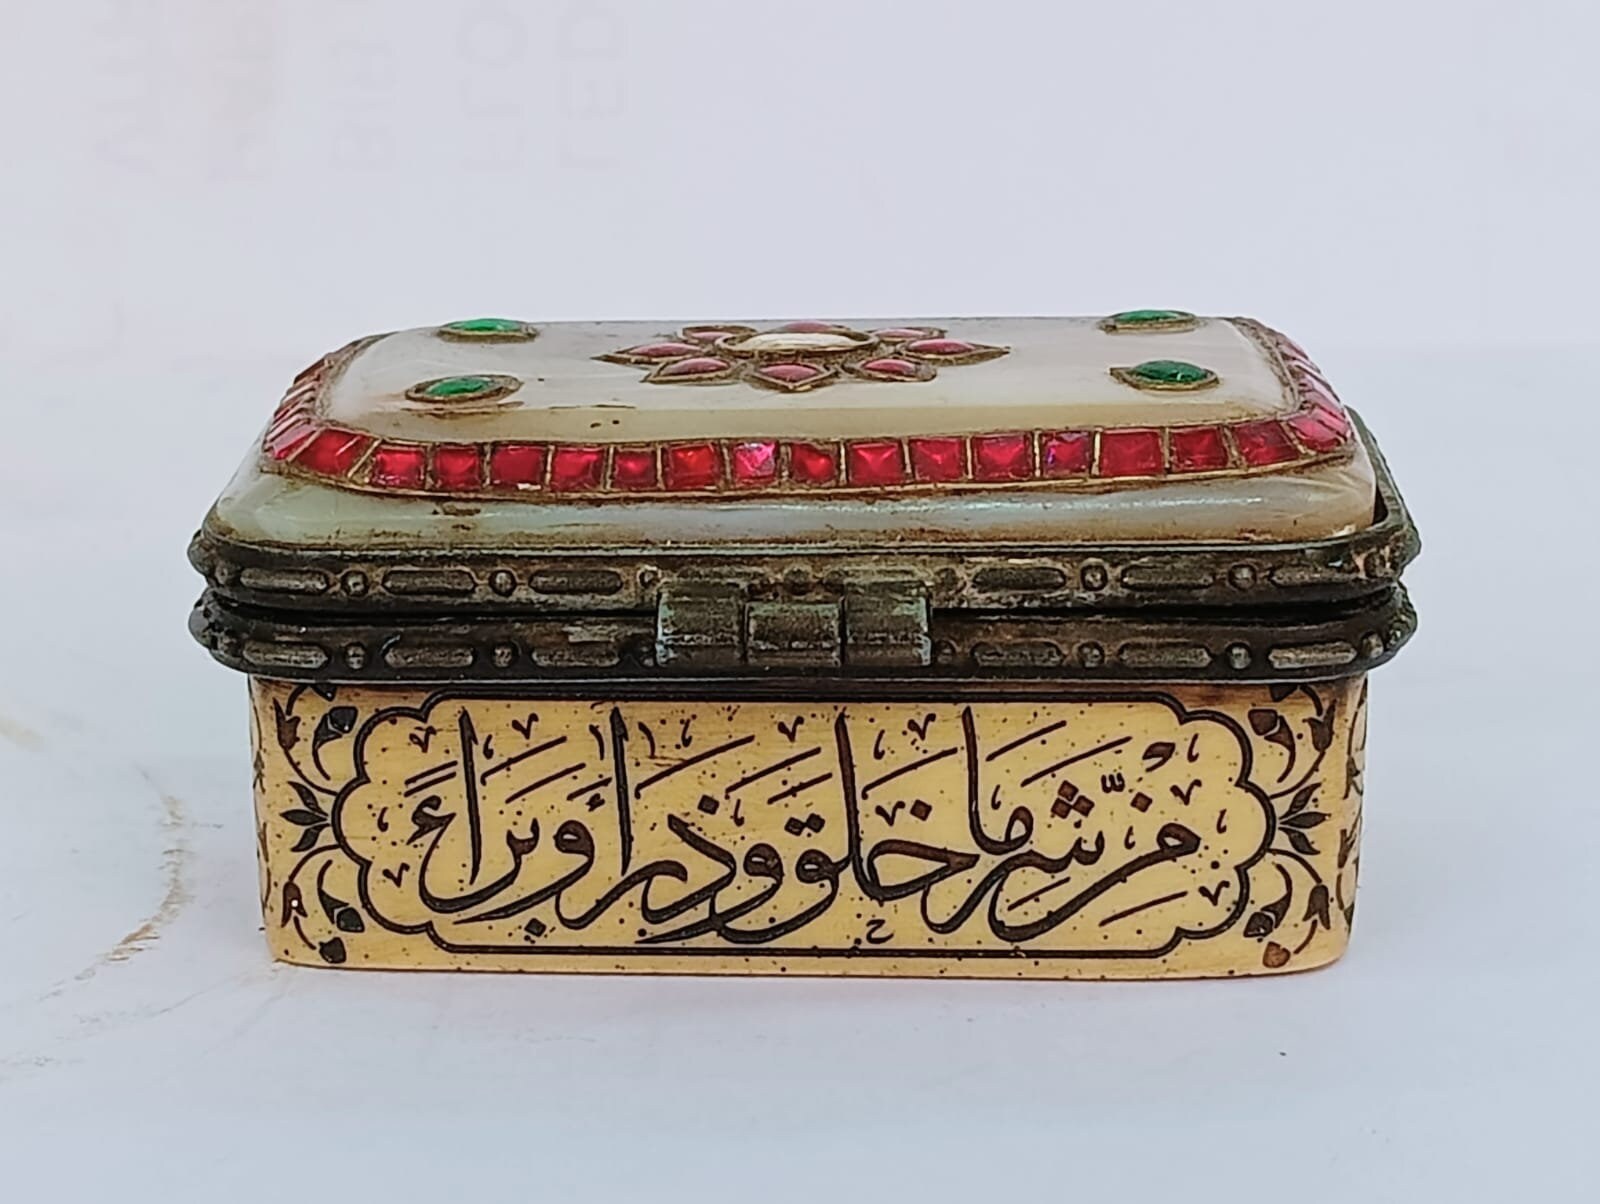 من شر ما خلق وذرأ وبراء